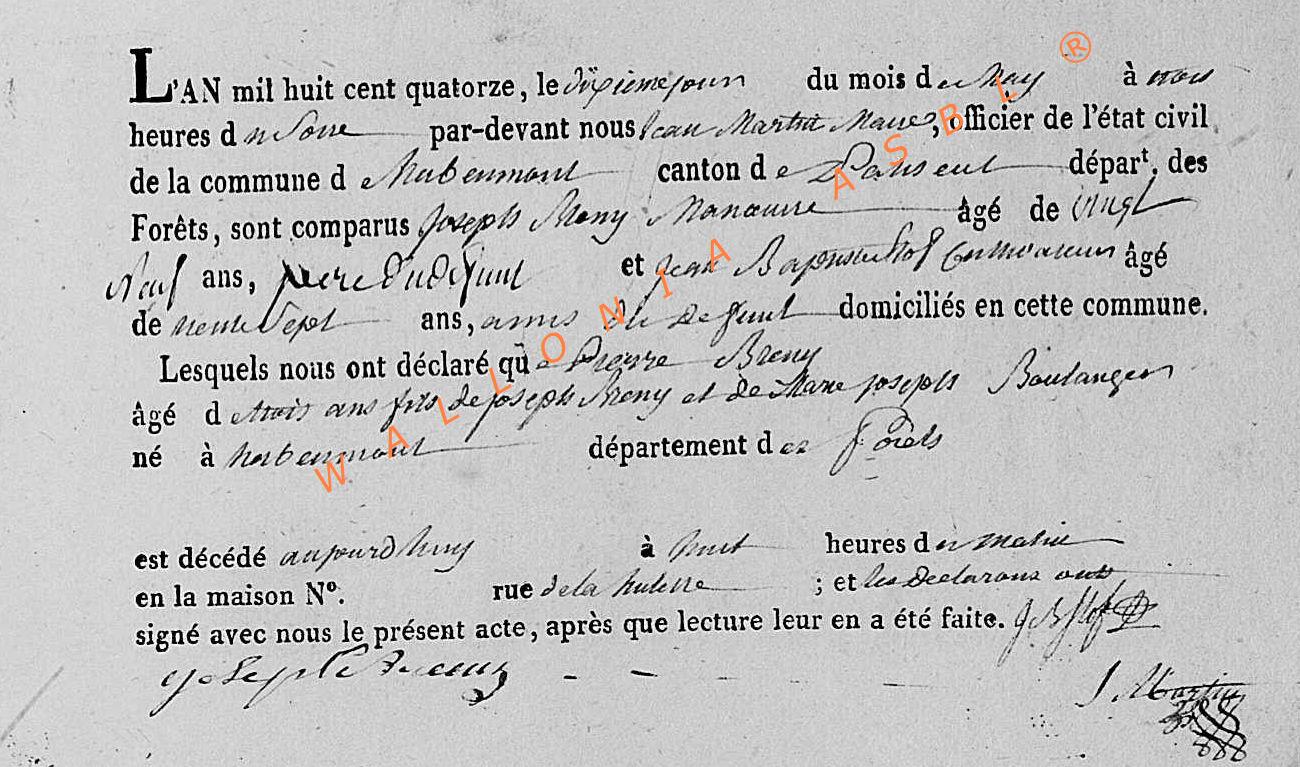 L'AN mil huit cent quatorze, le dixieme jour du mois de May à trois
heures du Soire par-devant nous Jean Martin Maire, officier de l'état civil
de la commune d canton de départ. des
Forêts, sont comparus Joseph Breny Manœuvre âgé de vingt
Neuf ans, père dudefunt et Jean Baptiste Stof Cultivateur âgé
de trente Sept ans, amis du defunt domiciliés en cette commune.
Lesquels nous ont déclaré que Pierre Breny
âgé de trois ans fils de joseph Breny et de Marie joseph Boulanger
né à département des Forêts
est décédé aujourdhuy à huit heures du matin
en la maison N°. rue de la ; et les Declarans ont
signé avec nous le présent acte, après que lecture leur en a été faite. J B Stof
joseph Breny
J. Martin
WALLONIA ASBL ®